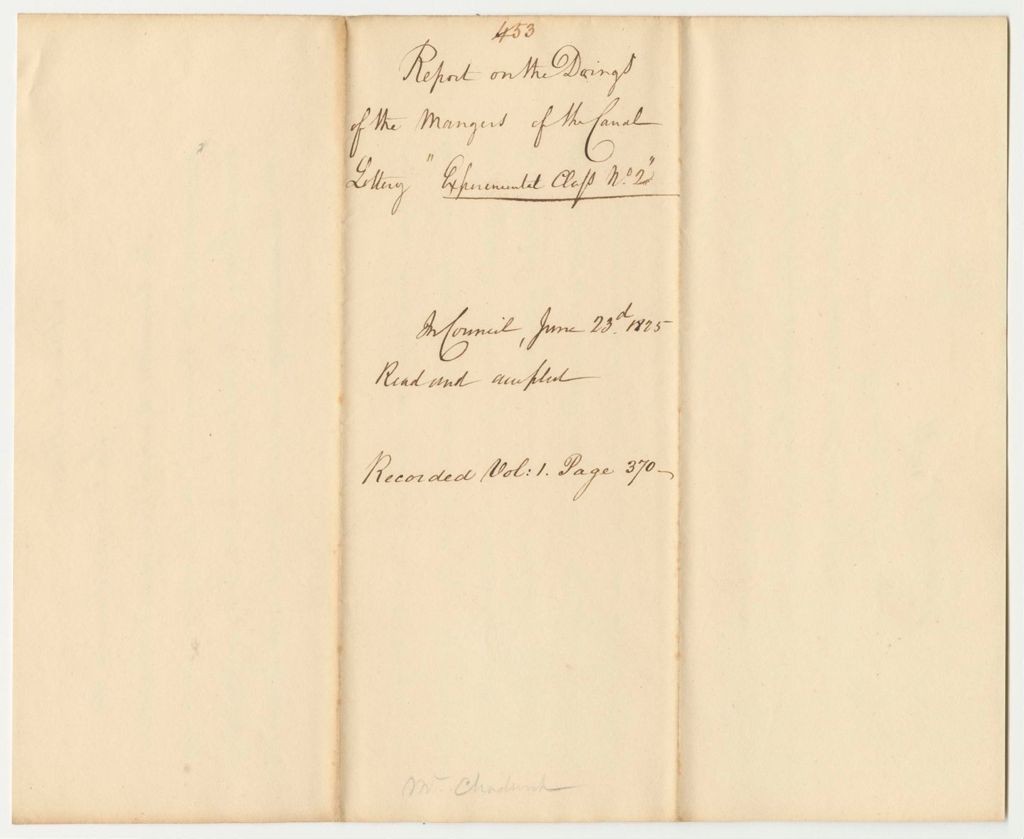 453
Report on the Doings
of the Mangers of the Canal
Lottery "Experimental Class No. 2"
In Council, June 23d 1825
Read and accepted
Recorded Vol: 1. Page 370
Mr. Chadwick